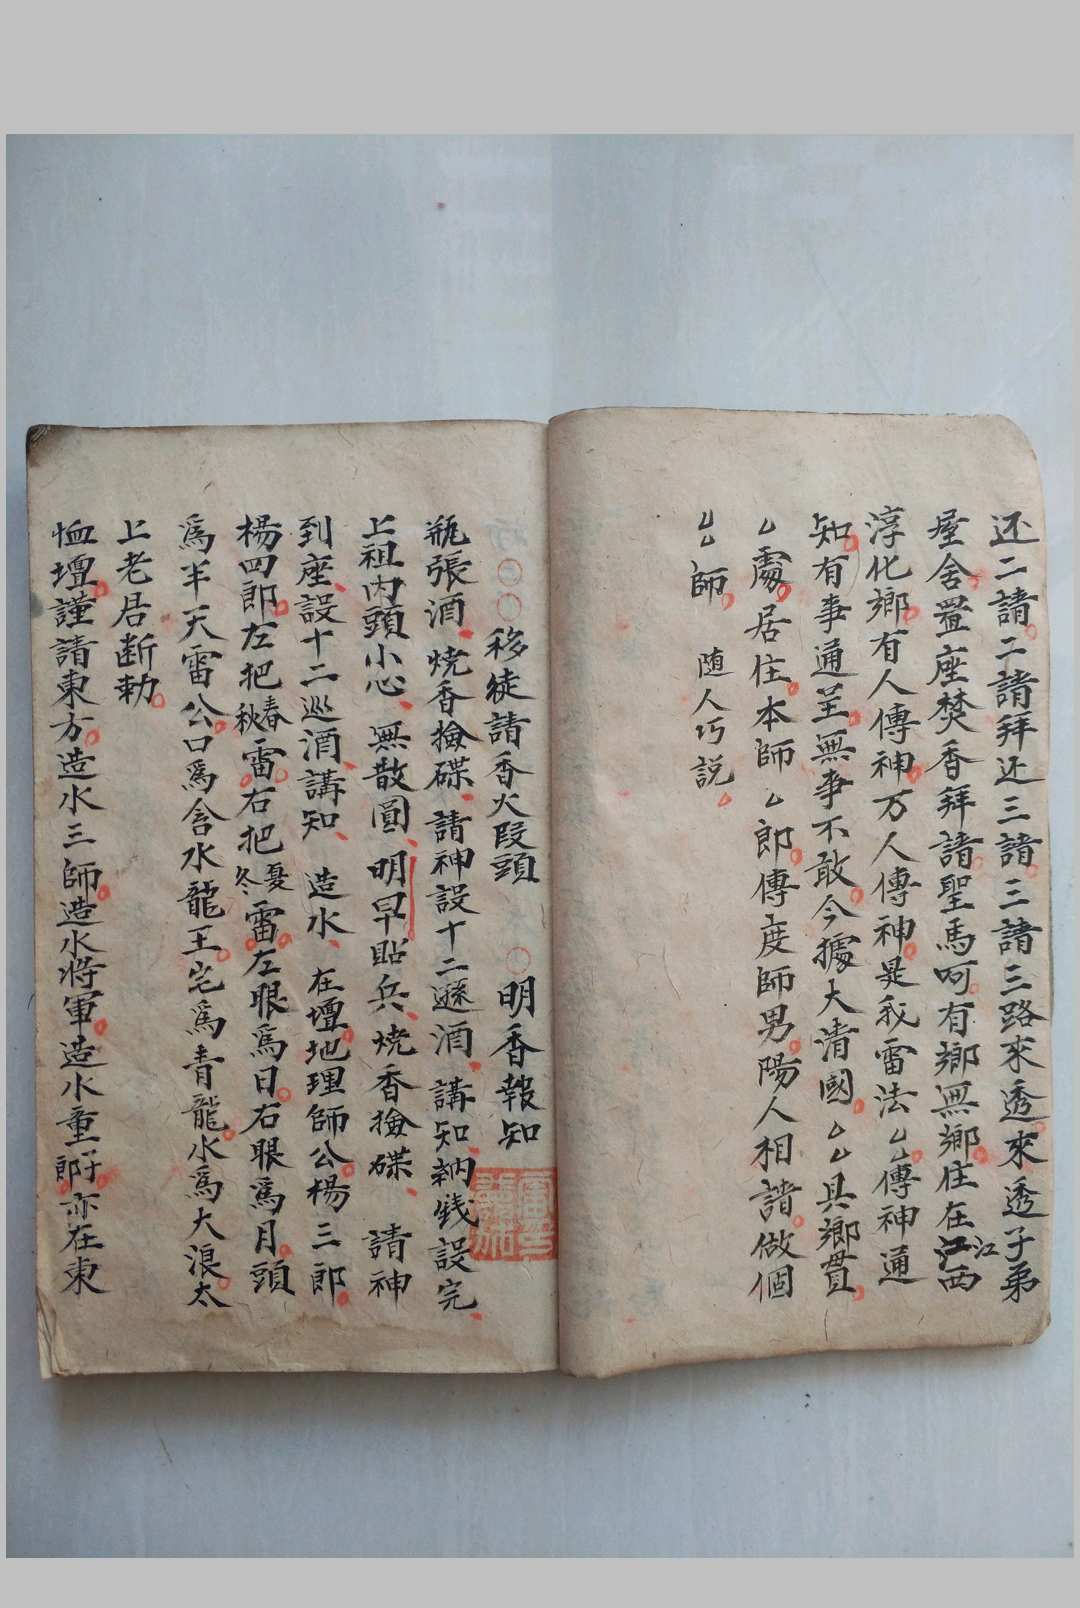 还二請二請拜还三請三請三路來透來透子弟
屋舍置座焚香拜請聖馬呵有鄉無鄉住在江江西
淳化鄉有人傳神万人傳神是我雷法厶厶傳神通
知有事通呈無事不敢今據大清國厶厶具鄉貫
厶處居住本師厶郎傳度師男陽人相請做個
厶厶師 随人巧説
〇〇〇移徒請香火段頭 〇明香報知
瓶張酒燒香撿碟請神設十二遜酒講知納钱設完
上祖内頭小心無散圓明早點兵燒香撿碟 請神
到座設十二巡酒講知 造水 在壇地理師公楊三郎
楊四郎左把春秋雷右把夏冬雷左眼為日右眼為月頭
為半天雷公口為含水龍王宅為青龍水為大浪太
上老居断勅
恤壇謹請東方造水三師造水将軍造水童子郎亦在東